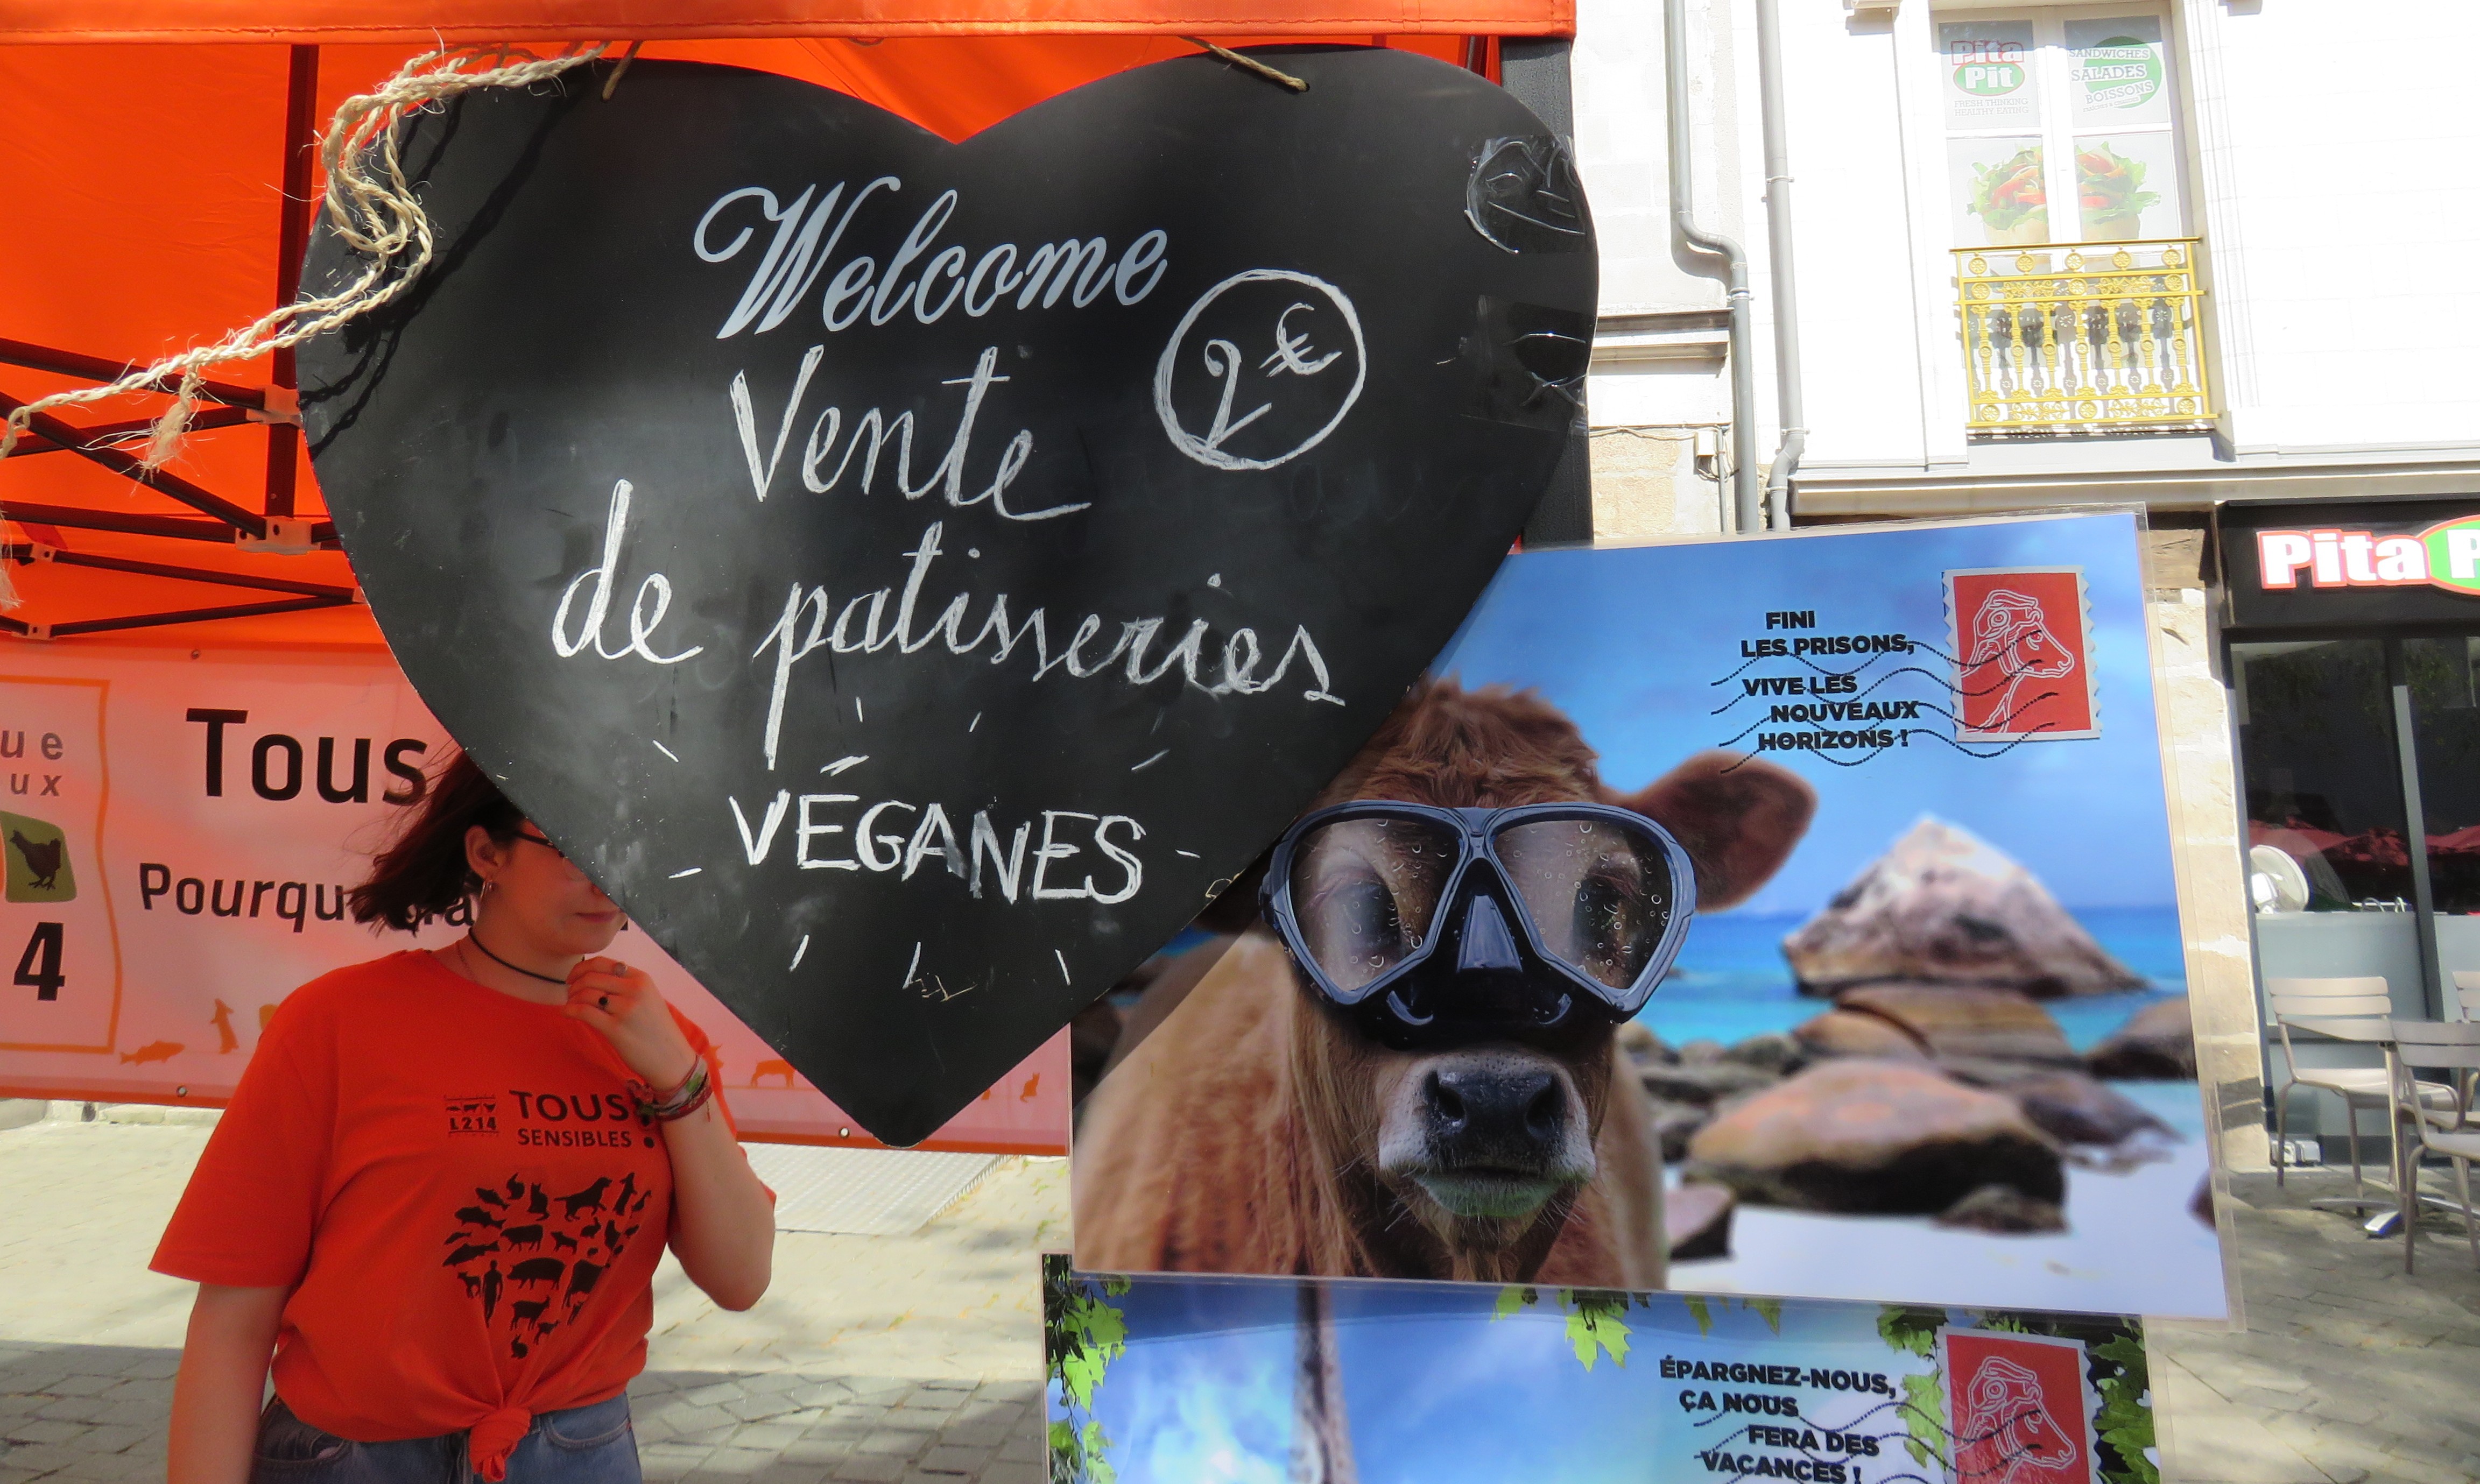 Welcome
2€
Vente
de patisseries
VÉGANES
Pita
Pit
FRESH THINKING
HEALTHY EATING
SANDWICHES
SALADES
BOISSONS
Pita
FINI
LES PRISONS,
VIVE LES
NOUVEAUX
HORIZONS !
ÉPARGNEZ-NOUS,
ÇA NOUS
FERA DES
VACANCES !
ue
ux
4
Tous
Pourqu
L214
TOUS
SENSIBLES